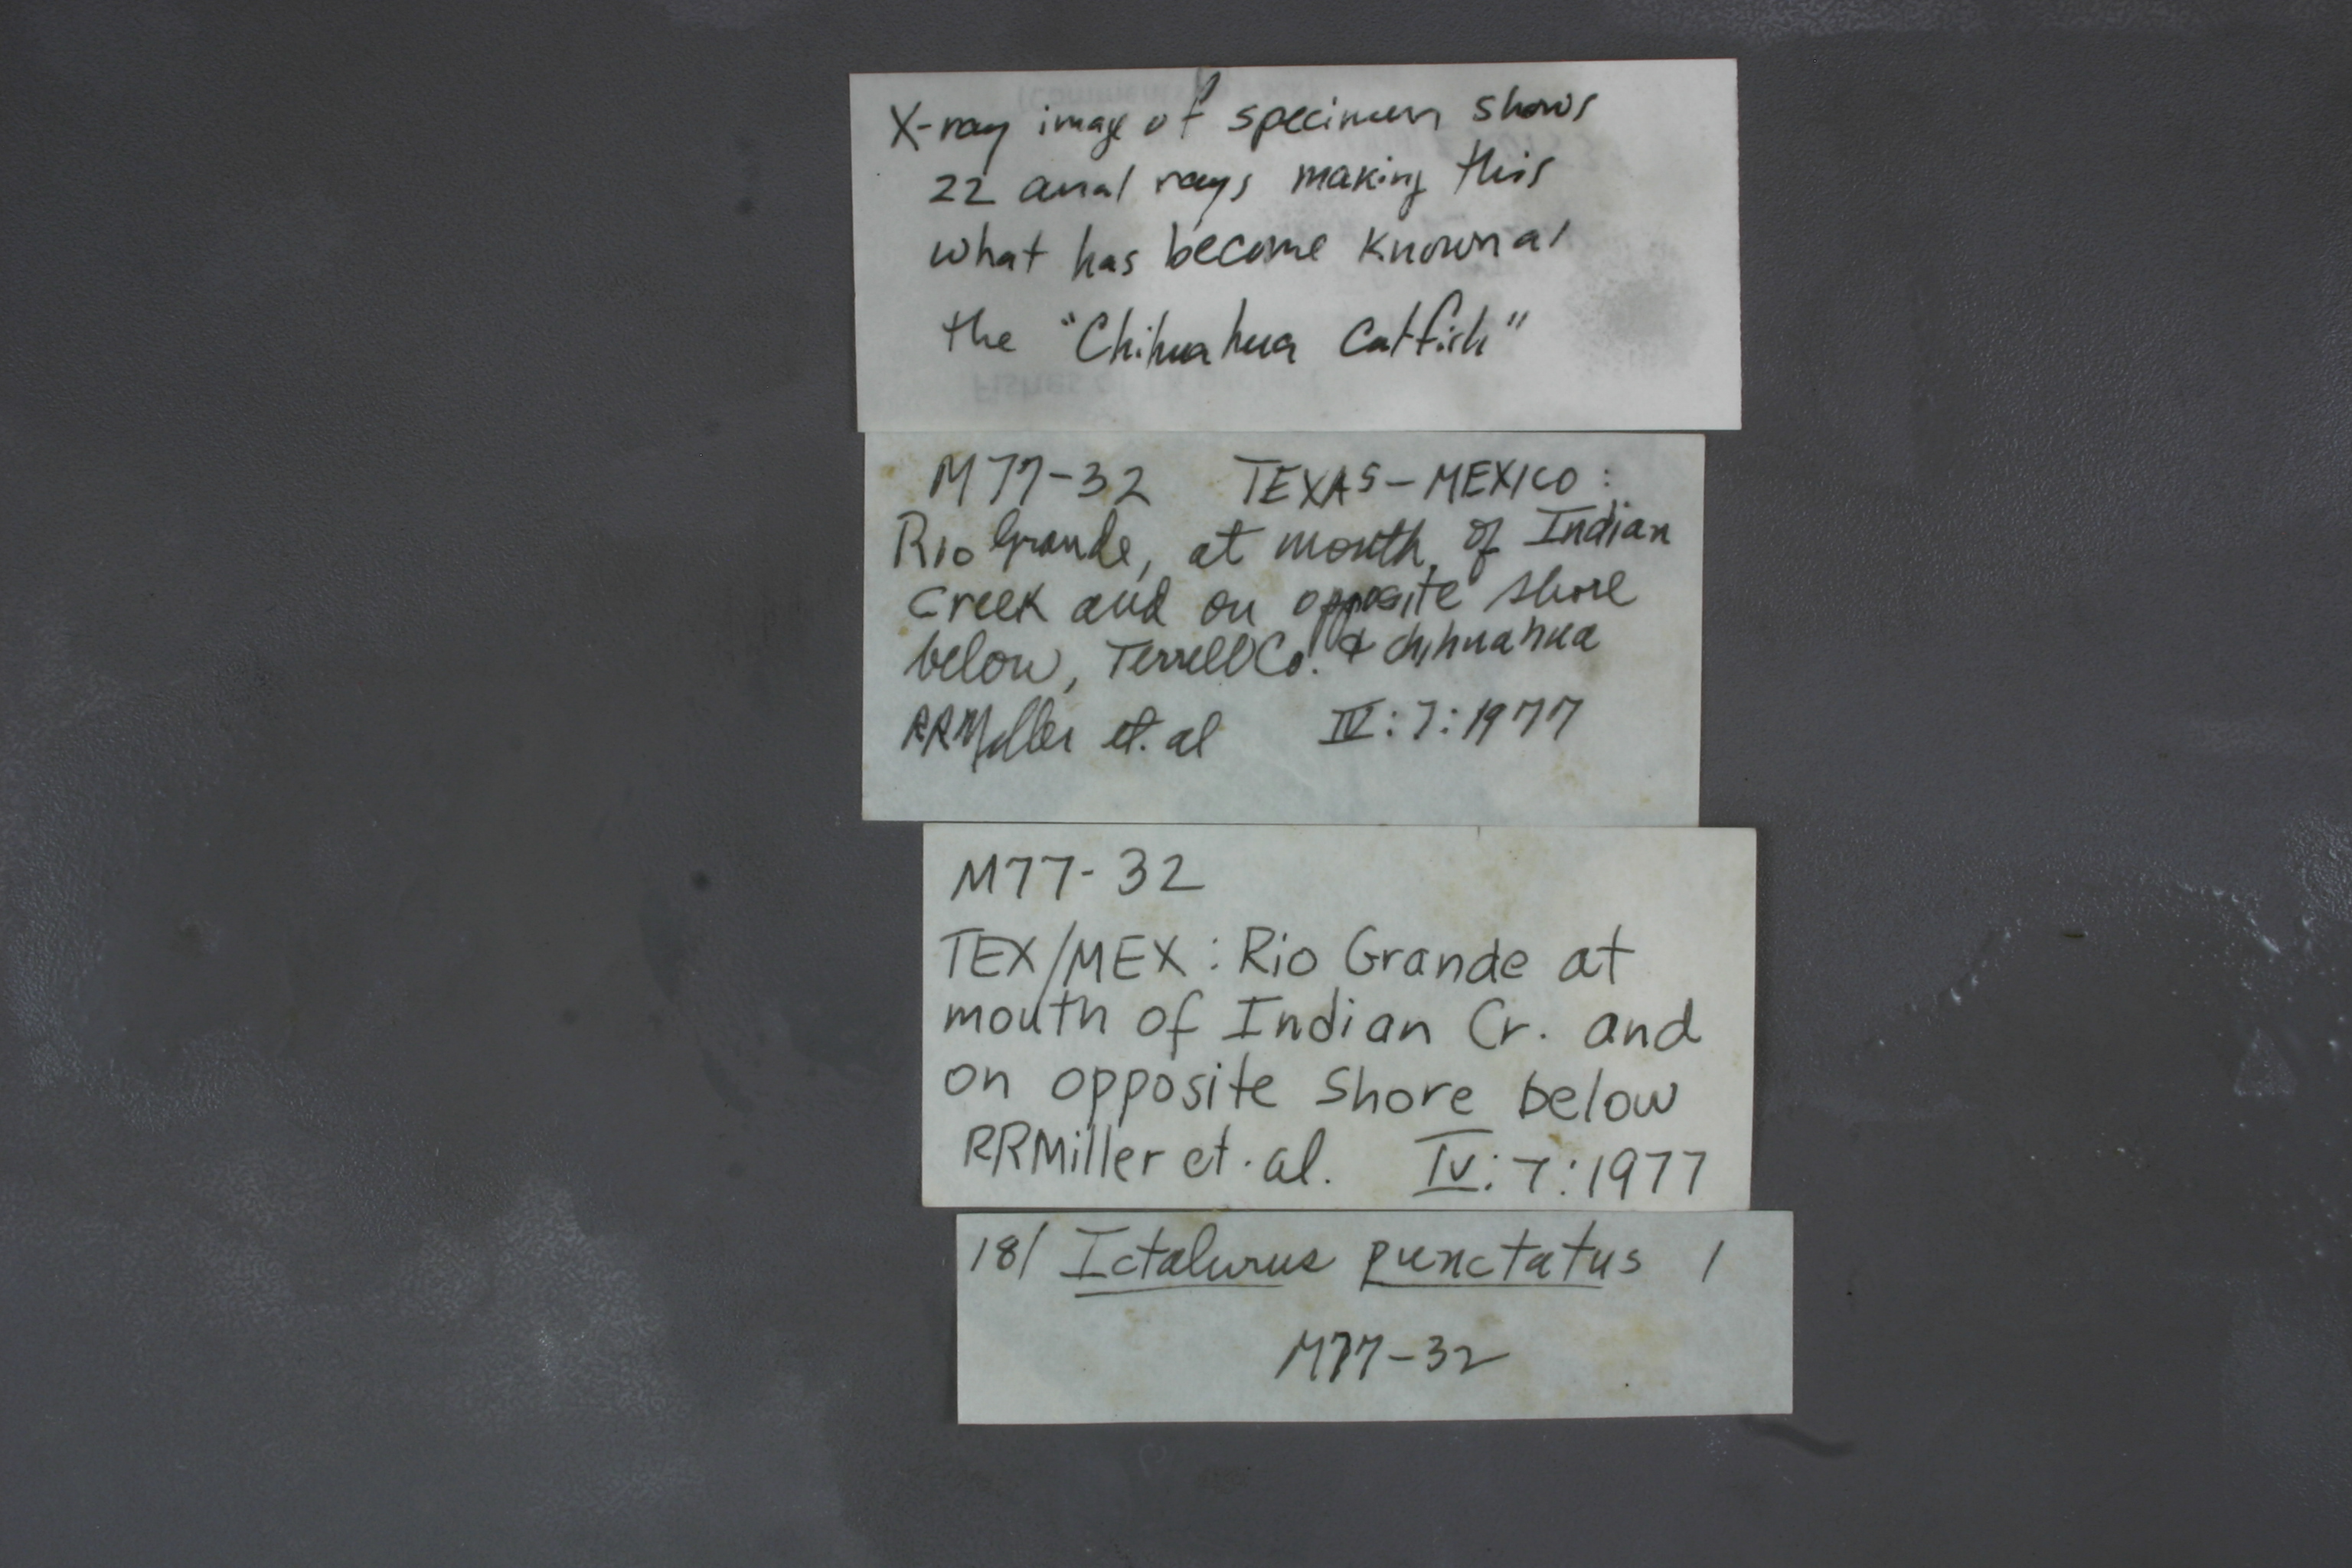 X-ray image of specimen shows
22 anal rays making this
what has become known as
the "Chihuahua Catfish"
M77-32 TEXAS-MEXICO:
Rio Grande, at mouth of Indian
Creek and on opposite shore
below, Terrell Co. & Chihuahua
RRMiller et. al IV:7:1977
M77-32
TEX/MEX: Rio Grande at
mouth of Indian Cr. and
on opposite shore below
RRMiller et. al. IV:7:1977
18/ Ictalurus punctatus 1
M77-32